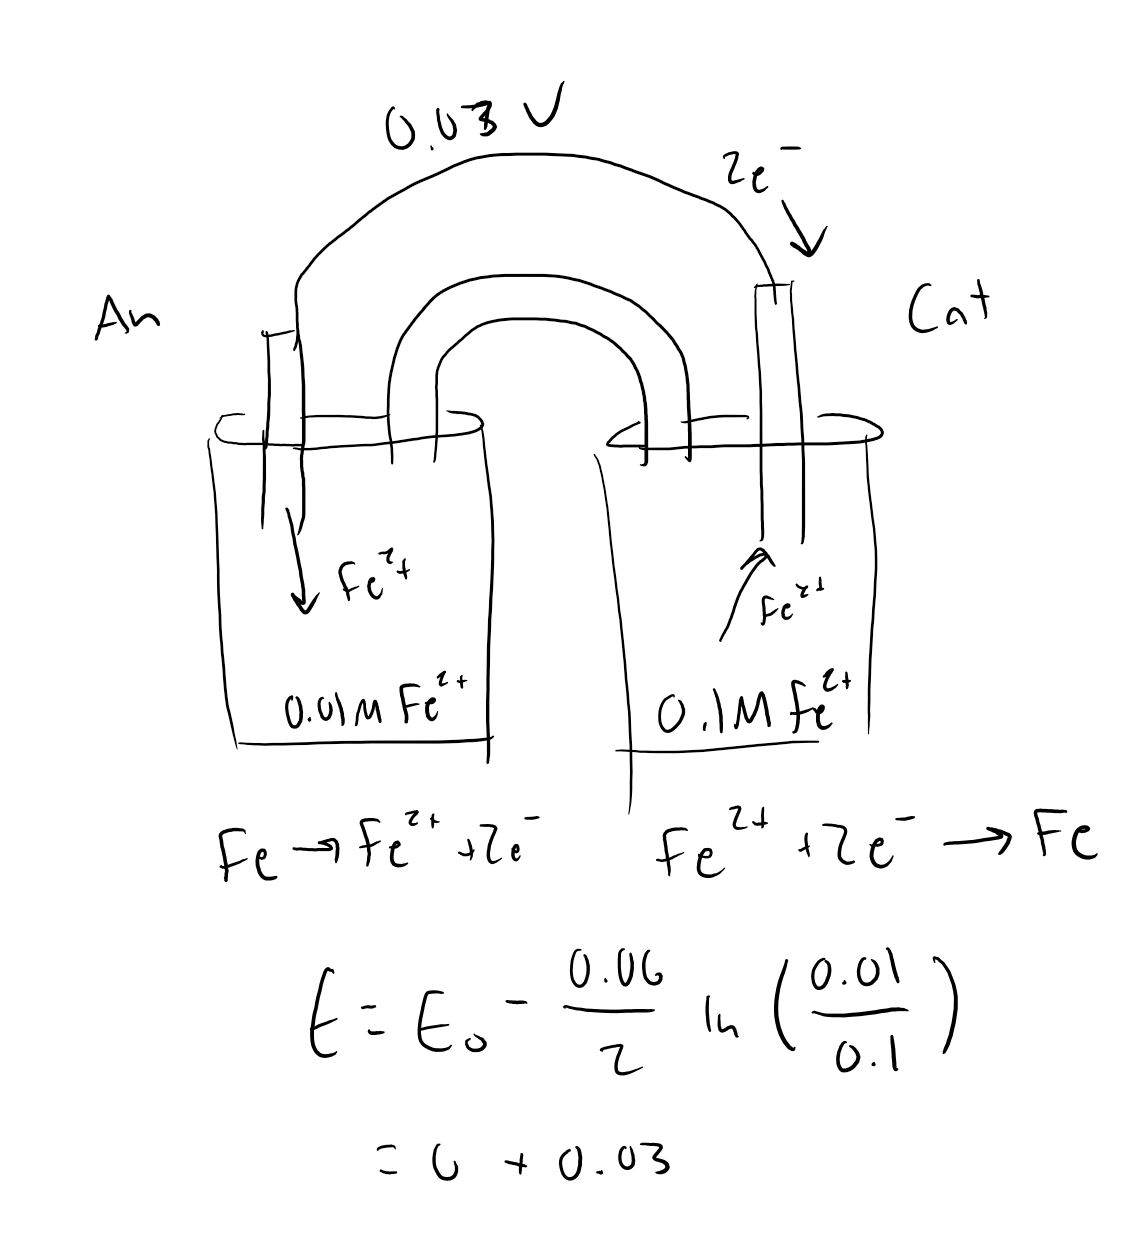 0.03 V
2e⁻
An
Cat
Fe²⁺
Fe²⁺
0.01M Fe²⁺
0.1M Fe²⁺
Fe → Fe²⁺ +2e⁻
Fe²⁺ +2e⁻ → Fe
E = E₀ - 0.06/2 ln (0.01/0.1)
= 0 + 0.03